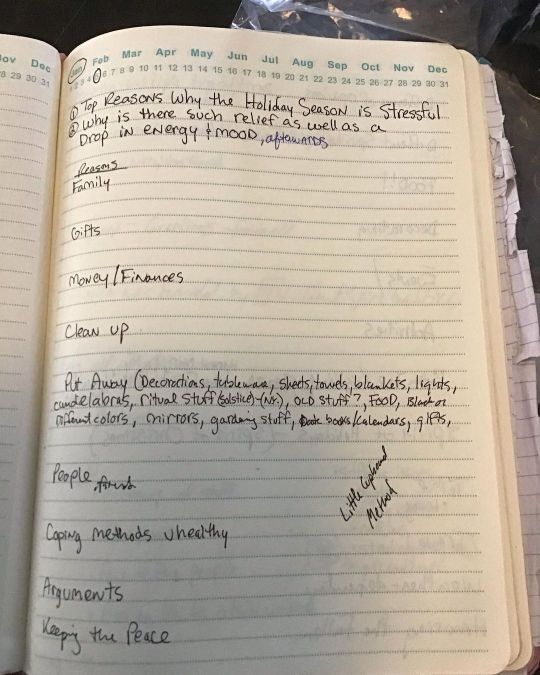 ov Dec
28 29 30 31
Jan Feb Mar Apr May Jun Jul Aug Sep Oct Nov Dec
3 4 5 6 7 8 9 10 11 12 13 14 15 16 17 18 19 20 21 22 23 24 25 26 27 28 29 30 31
① Top Reasons Why the Holiday Season is Stressful
② Why is there such relief as well as a
Drop in energy & mood, aftawards
Reasons
Family
Gifts
Money/Finances
Clean up
Put Away (Decorations, tubleware, sheets, towels, blankets, lights,
candelabras, ritual stuff (solstice)-(nr.), old stuff?, Food, Black or
Different colors, mirrors, gardening stuff, books/Calendars, gifts,
People
Little Cupboard
Method
Coping methods uhealthy
Arguments
Keeping the Peace